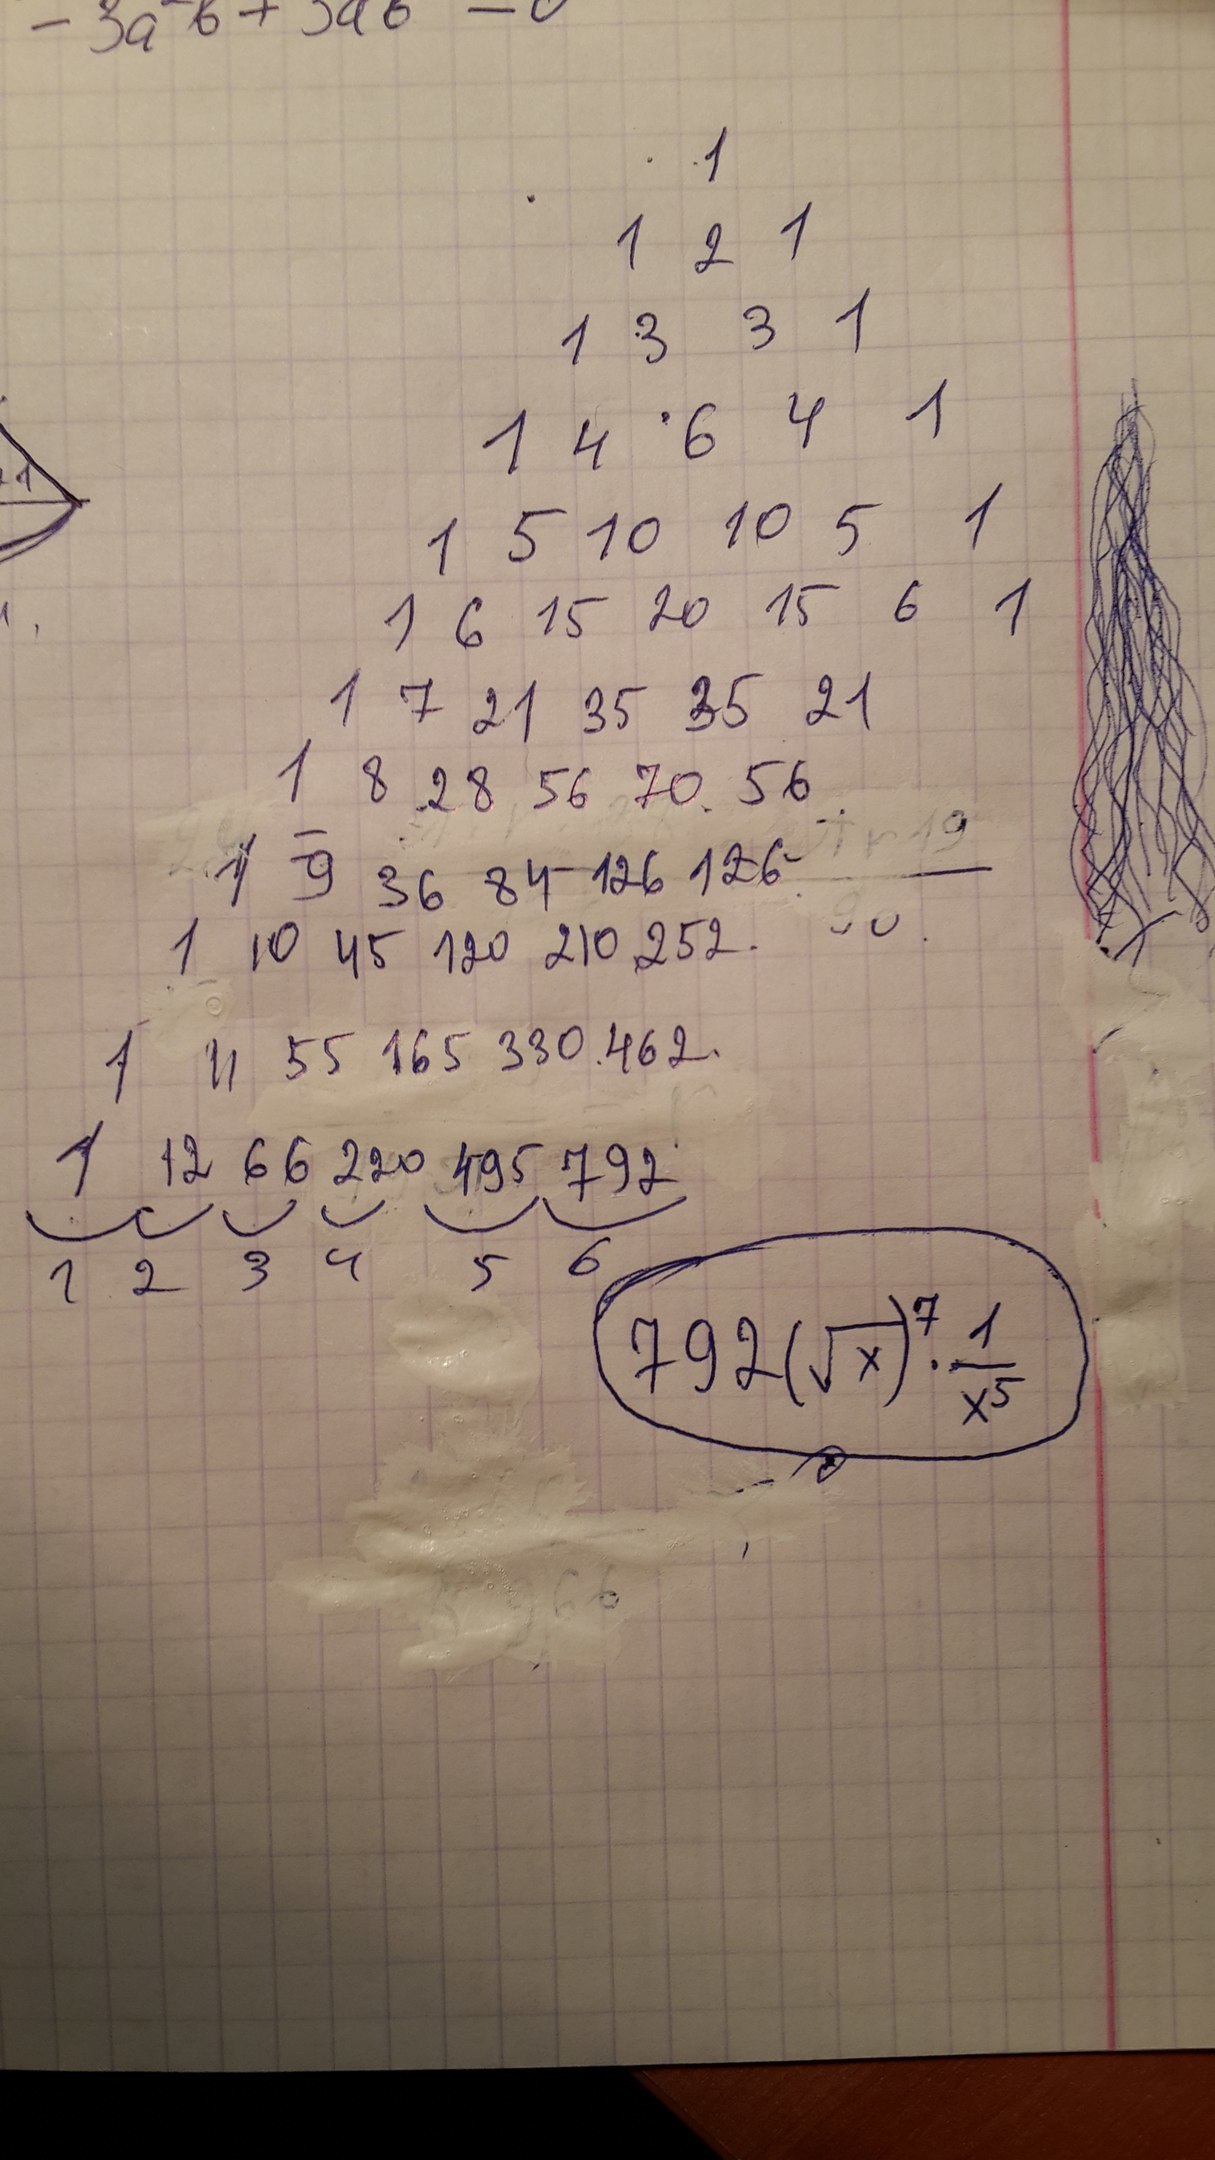 - 3a²b + 3ab
1
1 2 1
1 3 3 1
1 4 6 4 1
1 5 10 10 5 1
1 6 15 20 15 6 1
1 7 21 35 35 21
1 8 28 56 70 56
1 9 36 84 126 126
1 10 45 120 210 252.
1 11 55 165 330 462.
1 12 66 220 495 792
1 2 3 4 5 6
792(√x)⁷ · 1/x⁵